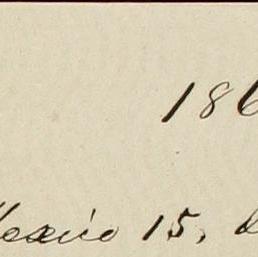 186
Mexico 15, d